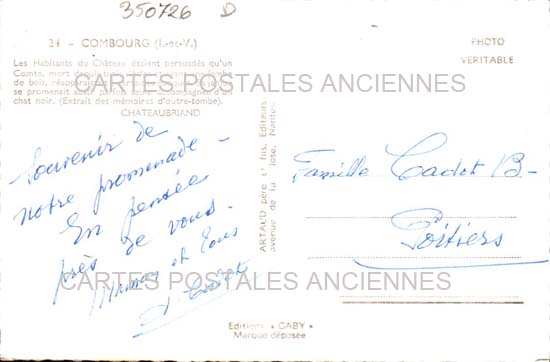 350726 D
24 - COMBOURG (I.-et-V.)
Les Habitants du Château étaient persuadés qu'un
Comte, mort depuis
de bois,
se promenait
chat noir. (Extrait des mémoires d'outre-tombe).
CHATEAUBRIAND
CARTES POSTALES ANCIENNES
PHOTO
VERITABLE
Souvenir de
notre promenade -
En pensée
près de vous.
et tous
ARTAUD père et fils, Editeurs
avenue de la Nantes
Famille Cadot B-
Poitiers
CARTES POSTALES ANCIENNES
Editions « GABY »
Marque déposée